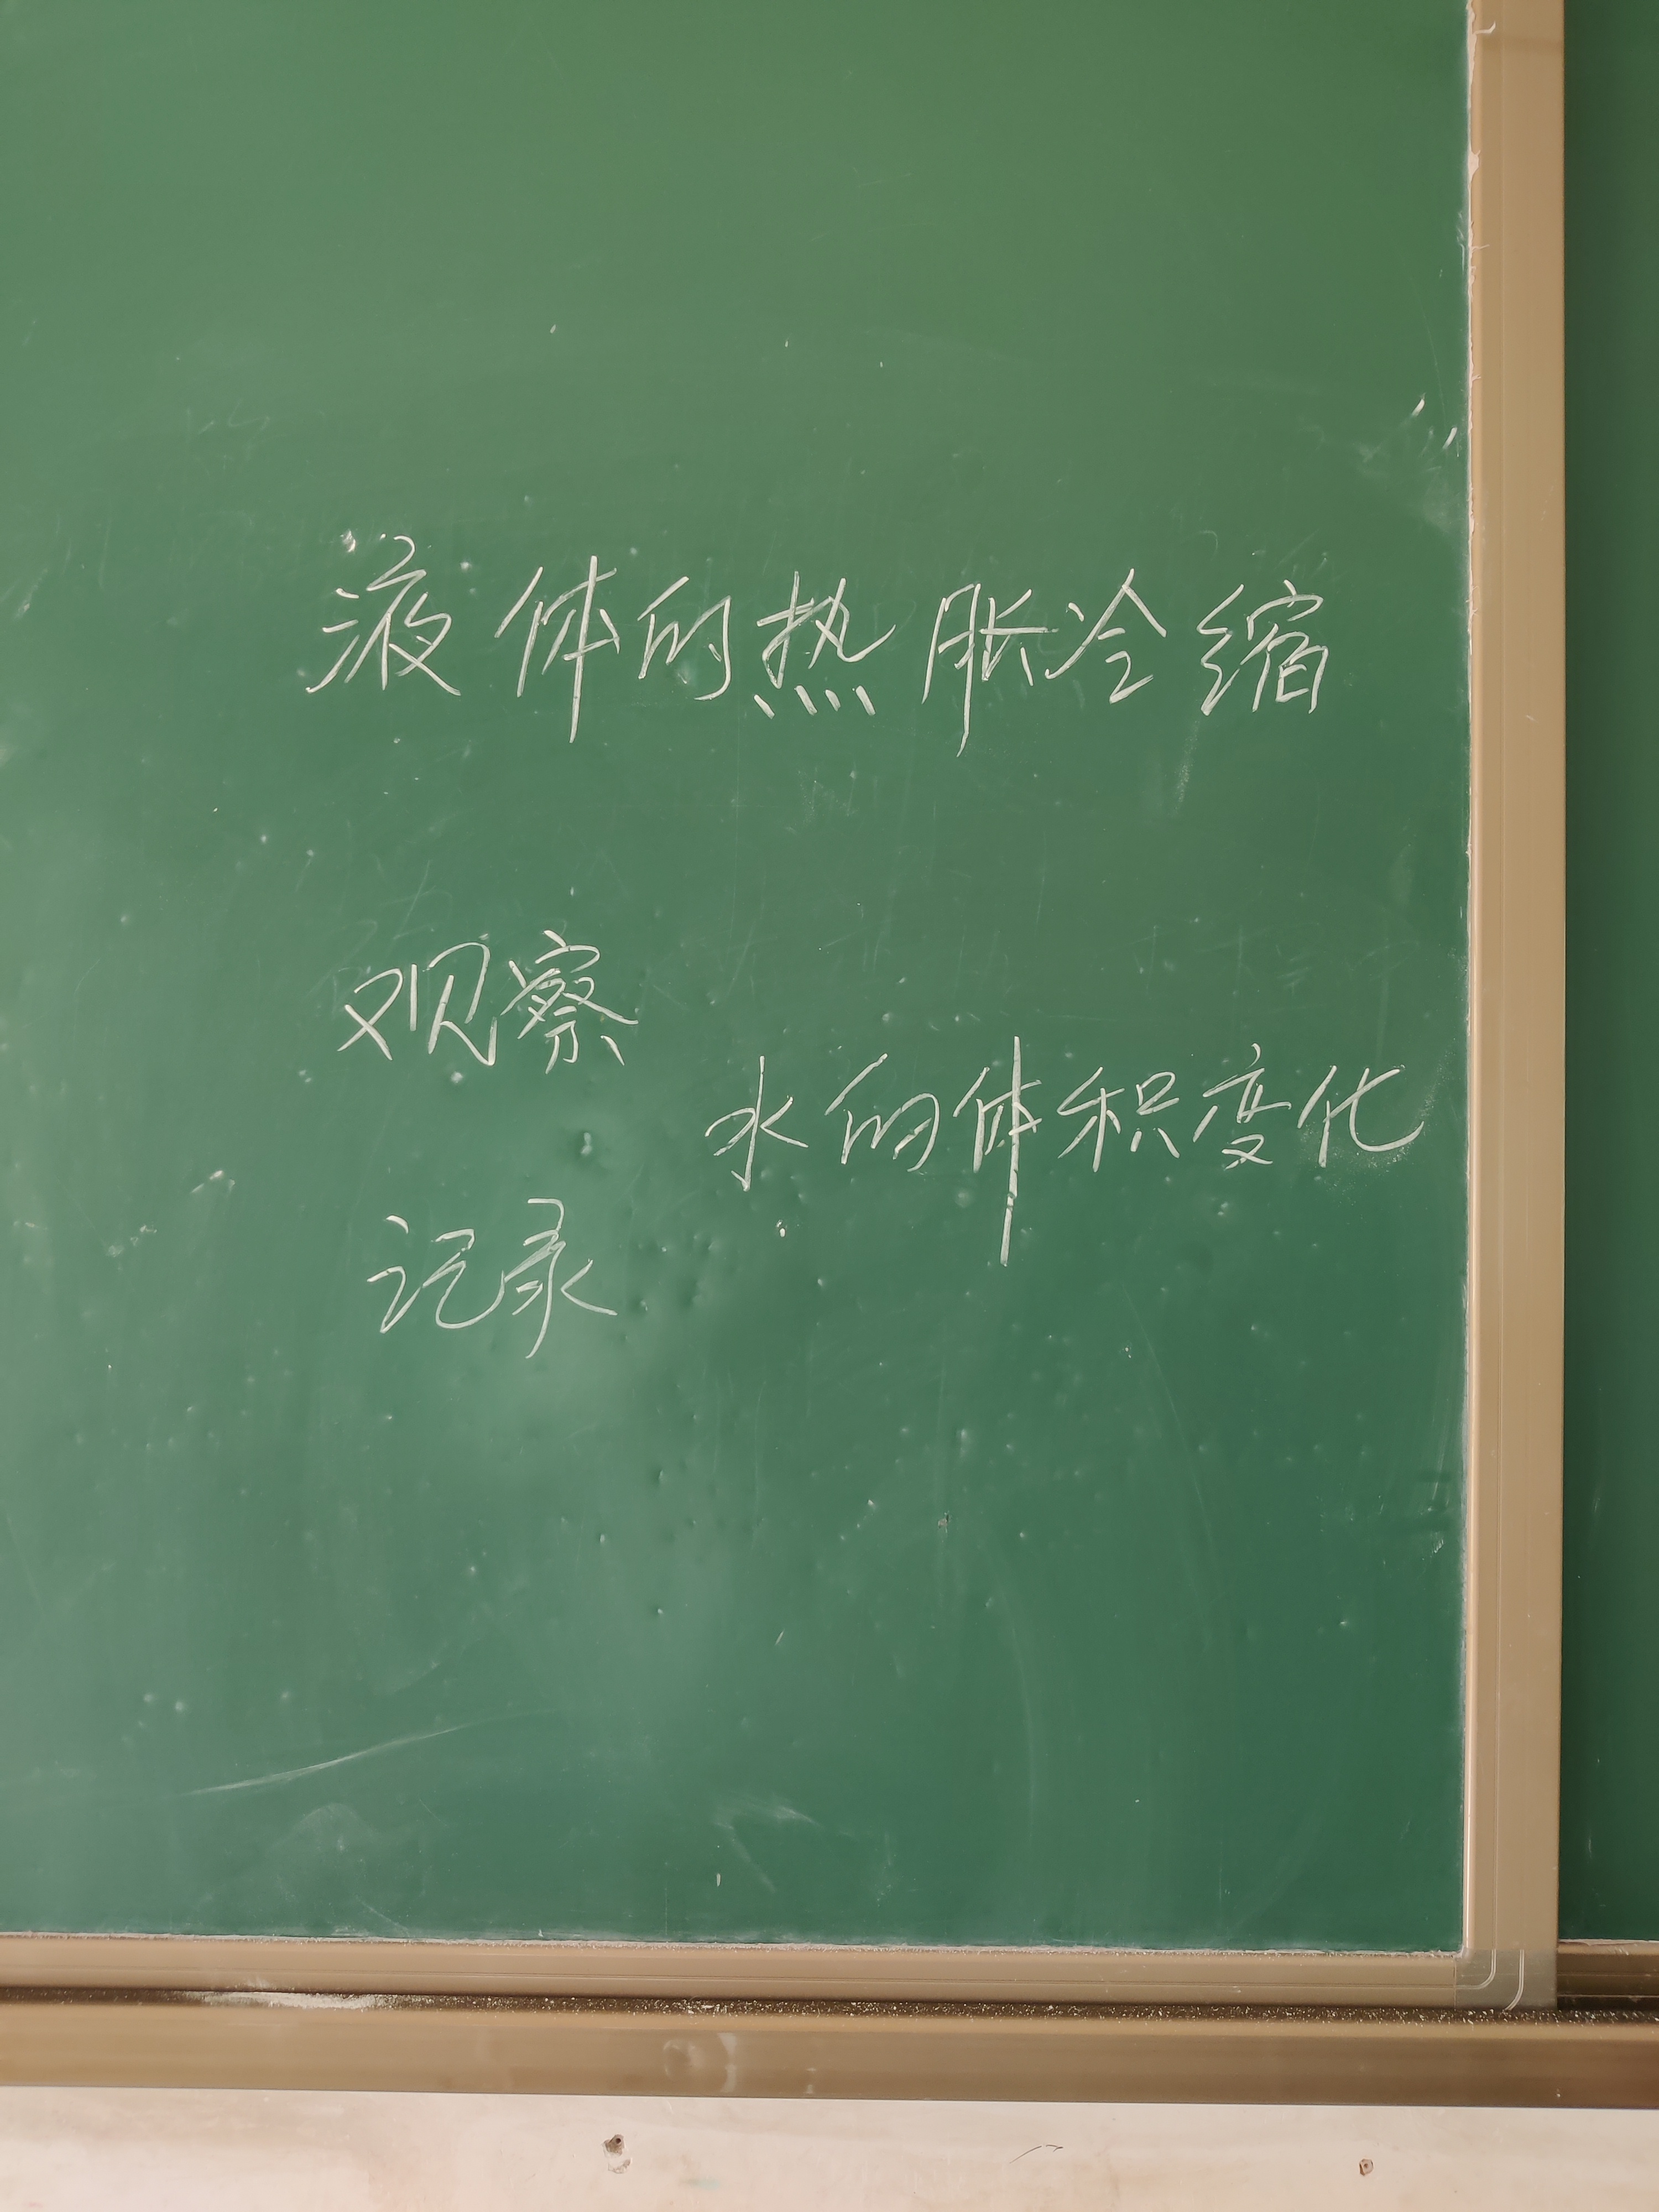 液体的热胀冷缩
观察
水的体积变化
记录